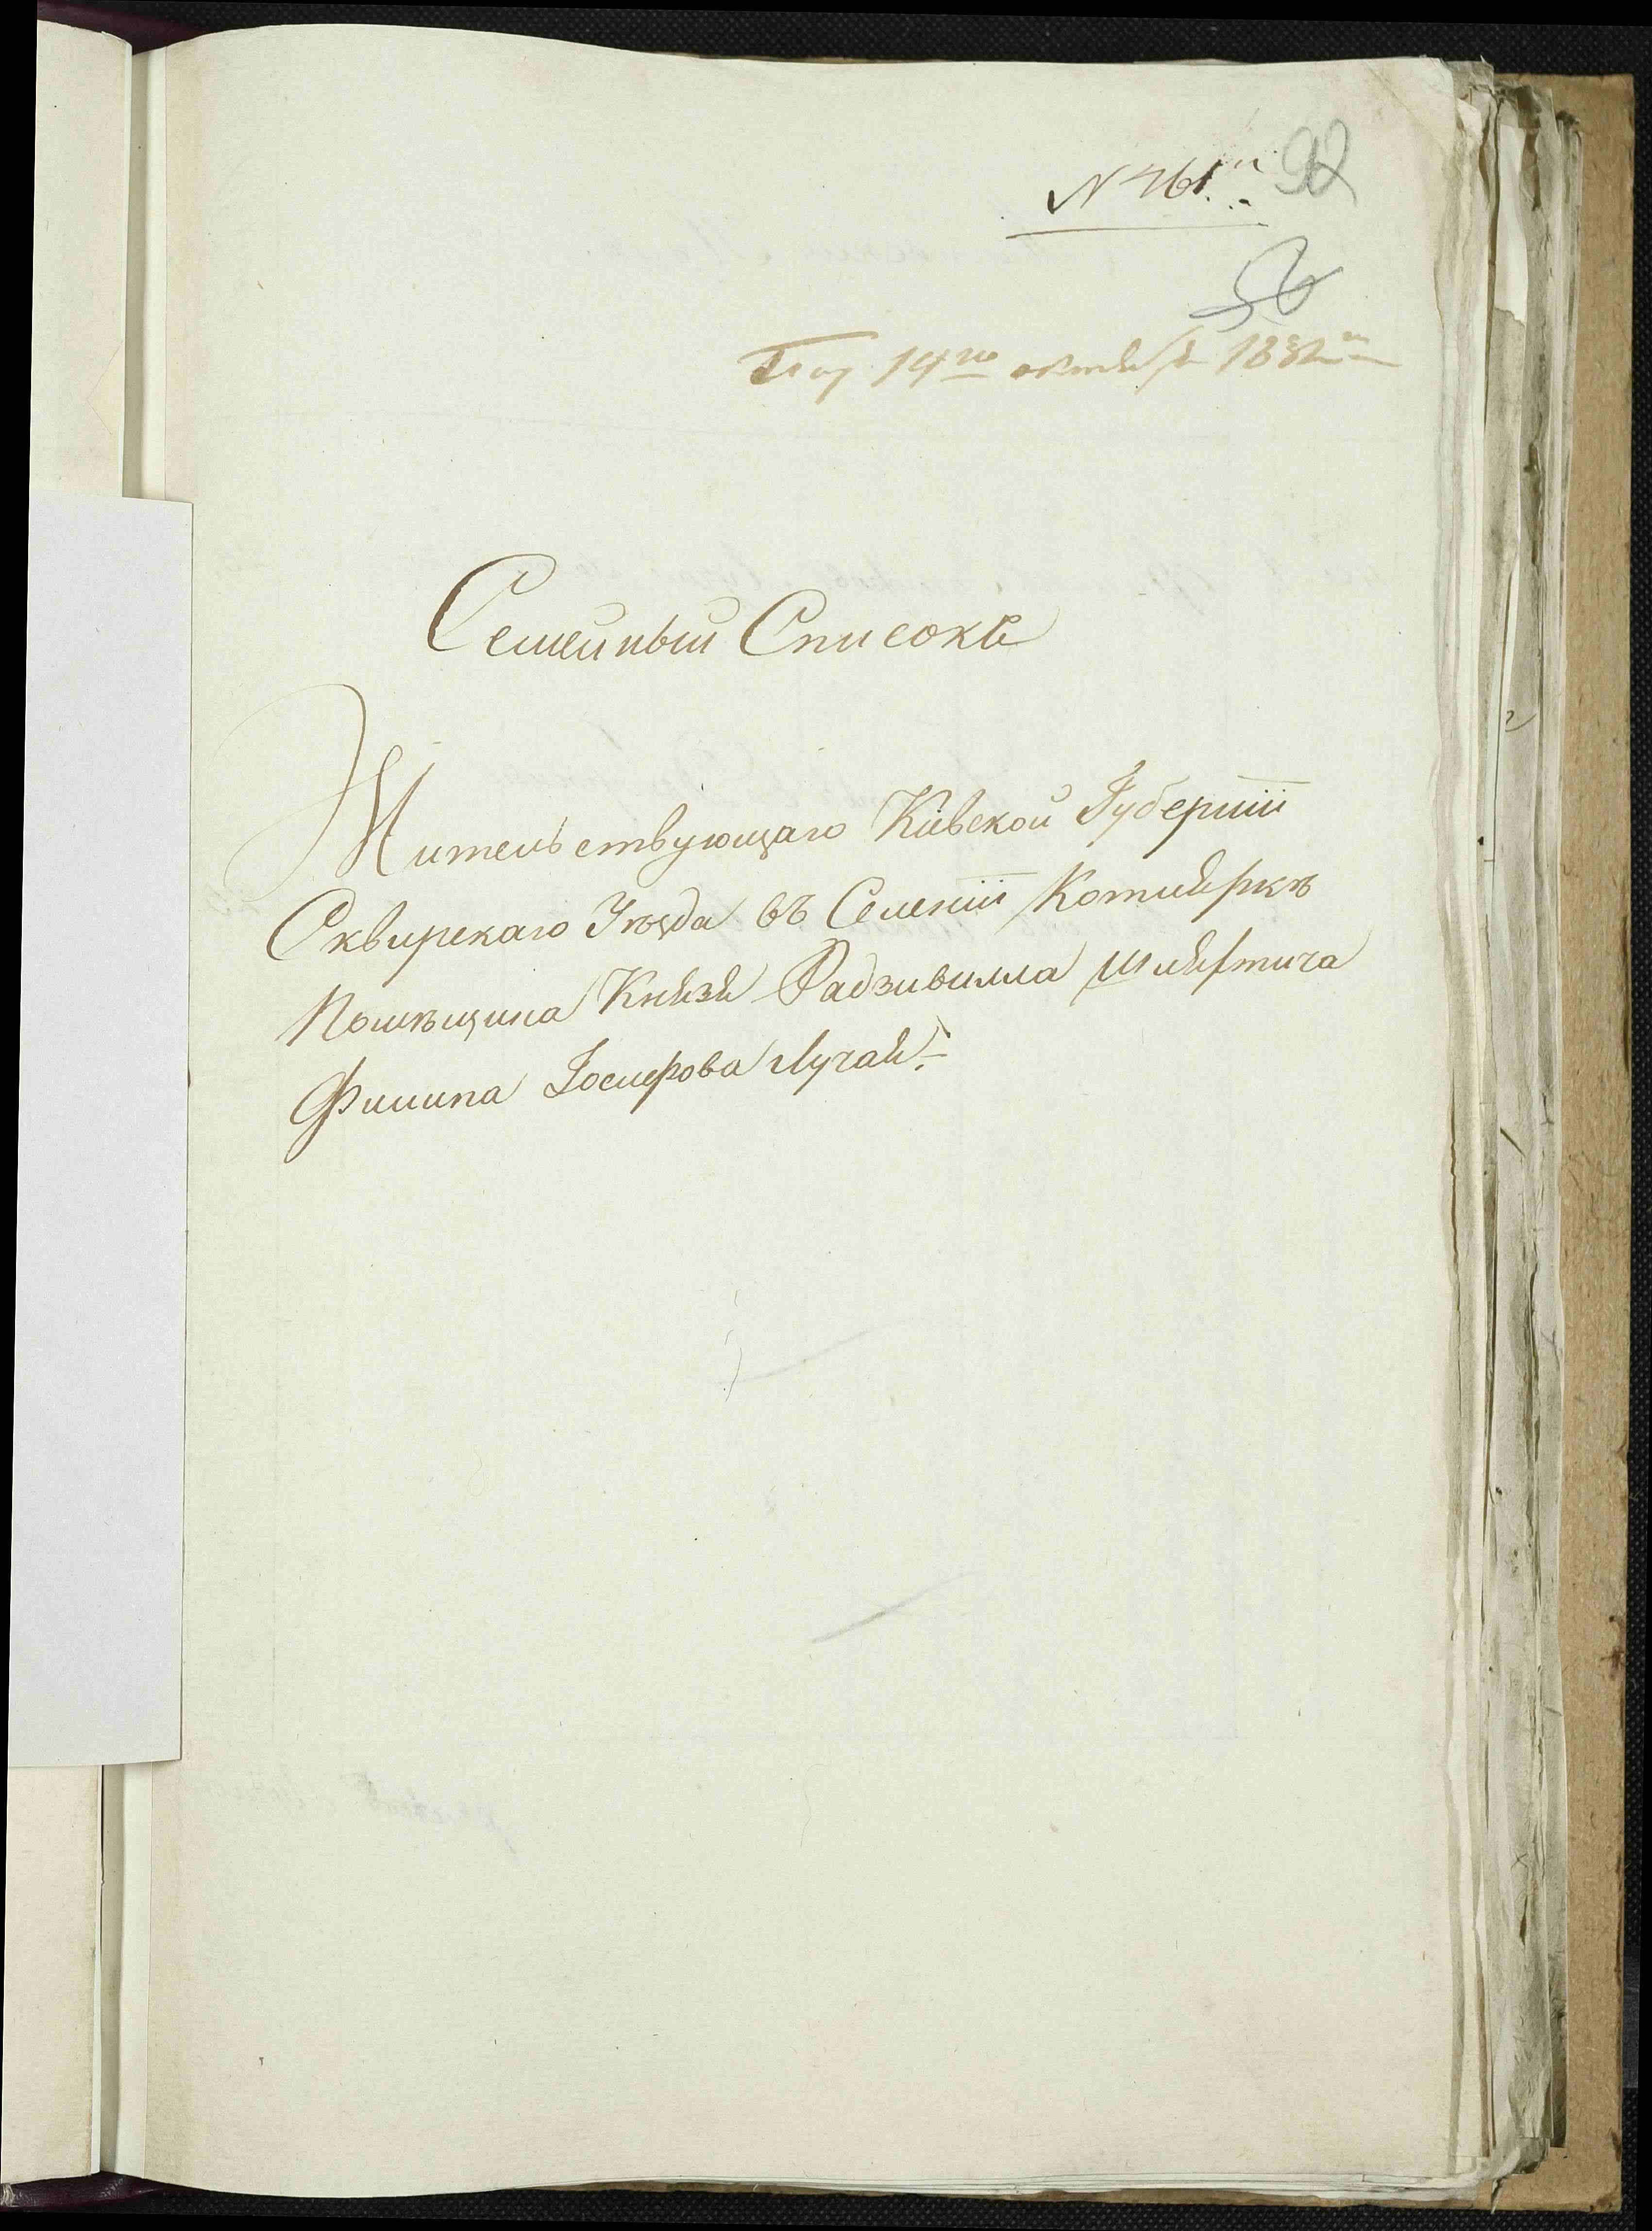 N 761й 92
56
Пол 14го октября 1832го
Семейный Списокъ
Жительствующаго Кіевской Губерніи
Сквирскаго Уѣзда въ Селеніи Котляркѣ
Помѣщика Князя Радзивилла шляхтича
Филипа Іосиерова Лучай